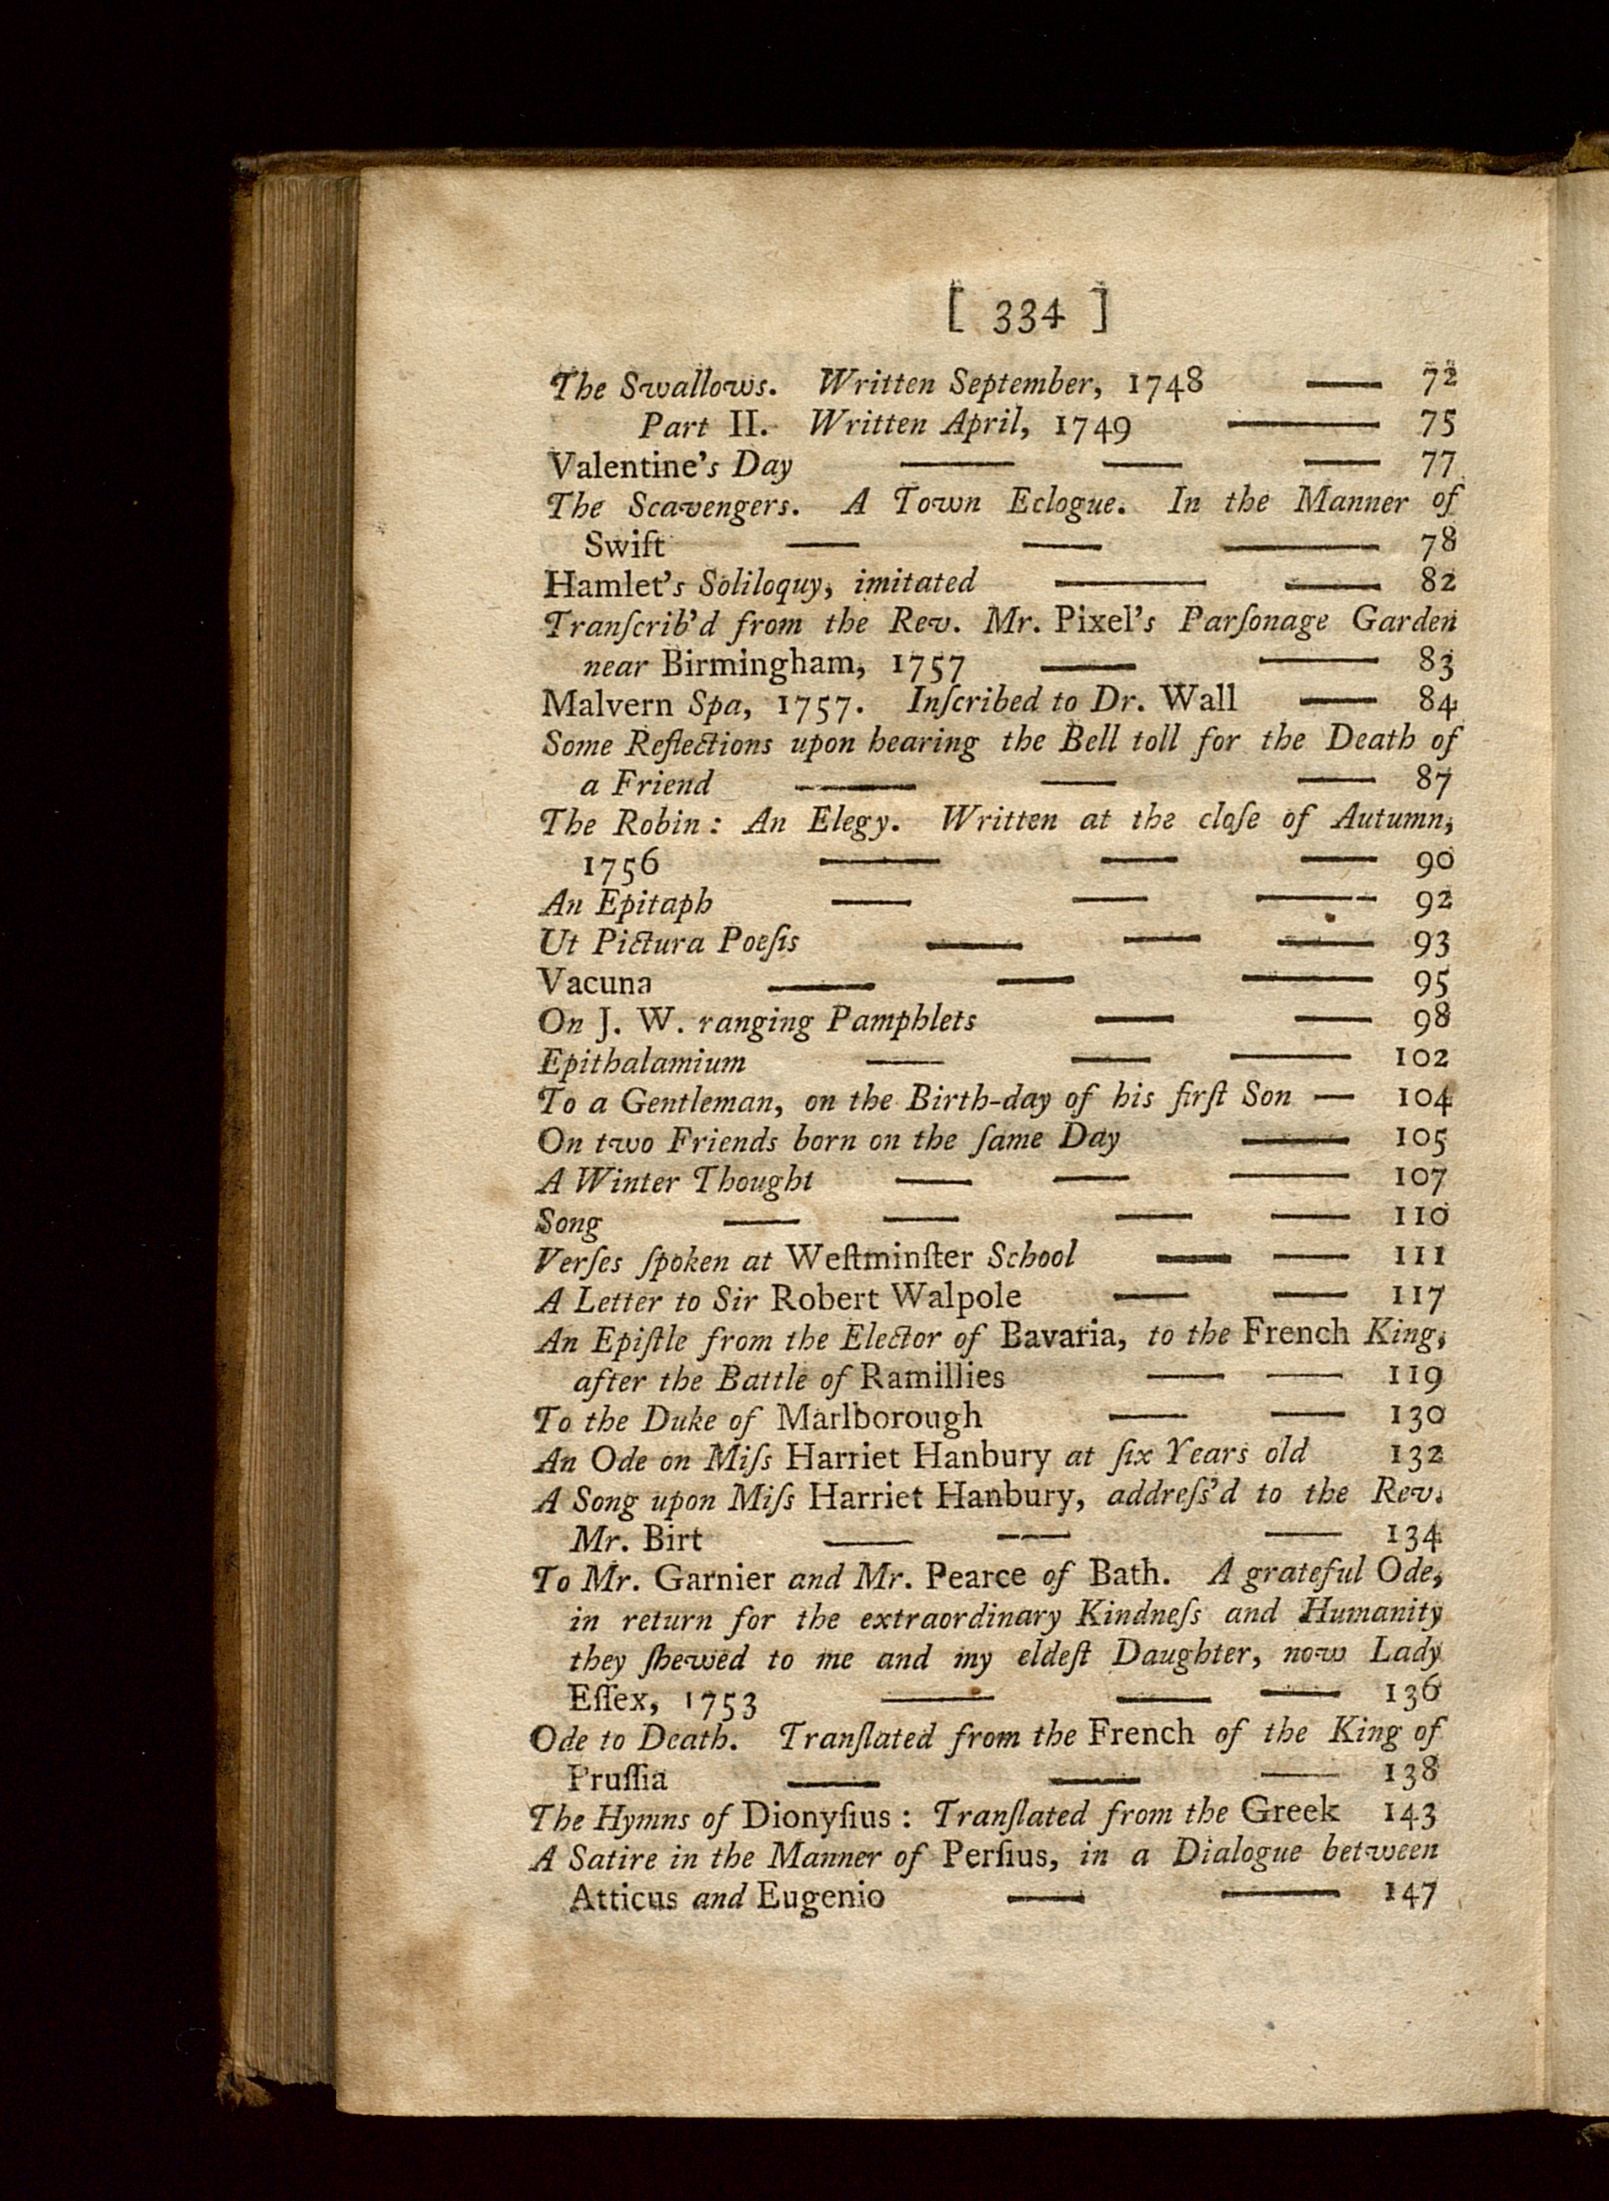 [ 334 ]
The Swallows. Written September, 1748 —— 72
Part II. Written April, 1749 —— 75
Valentine's Day —— —— —— 77
The Scavengers. A Town Eclogue. In the Manner of
Swift —— —— —— 78
Hamlet's Soliloquy, imitated —— —— 82
Tranſcrib'd from the Rev. Mr. Pixel's Parſonage Garden
near Birmingham, 1757 —— —— 83
Malvern Spa, 1757. Inſcribed to Dr. Wall —— 84
Some Reflections upon hearing the Bell toll for the Death of
a Friend —— —— —— 87
The Robin: An Elegy. Written at the cloſe of Autumn,
1756 —— —— —— 90
An Epitaph —— —— —— 92
Ut Pictura Poeſis —— —— —— 93
Vacuna —— —— —— 95
On J. W. ranging Pamphlets —— —— 98
Epithalamium —— —— —— 102
To a Gentleman, on the Birth-day of his firſt Son — 104
On two Friends born on the ſame Day —— 105
A Winter Thought —— —— —— 107
Song —— —— —— —— 110
Verſes ſpoken at Weſtminſter School —— —— 111
A Letter to Sir Robert Walpole —— —— 117
An Epiſtle from the Elector of Bavaria, to the French King,
after the Battle of Ramillies —— —— 119
To the Duke of Marlborough —— —— 130
An Ode on Miſs Harriet Hanbury at ſix Years old 132
A Song upon Miſs Harriet Hanbury, addreſs'd to the Rev.
Mr. Birt —— —— —— 134
To Mr. Garnier and Mr. Pearce of Bath. A grateful Ode,
in return for the extraordinary Kindneſs and Humanity
they ſhewed to me and my eldeſt Daughter, now Lady
Eſſex, 1753 —— —— —— 136
Ode to Death. Tranſlated from the French of the King of
Pruſſia —— —— —— 138
The Hymns of Dionyſius: Tranſlated from the Greek 143
A Satire in the Manner of Perſius, in a Dialogue between
Atticus and Eugenio —— —— 147